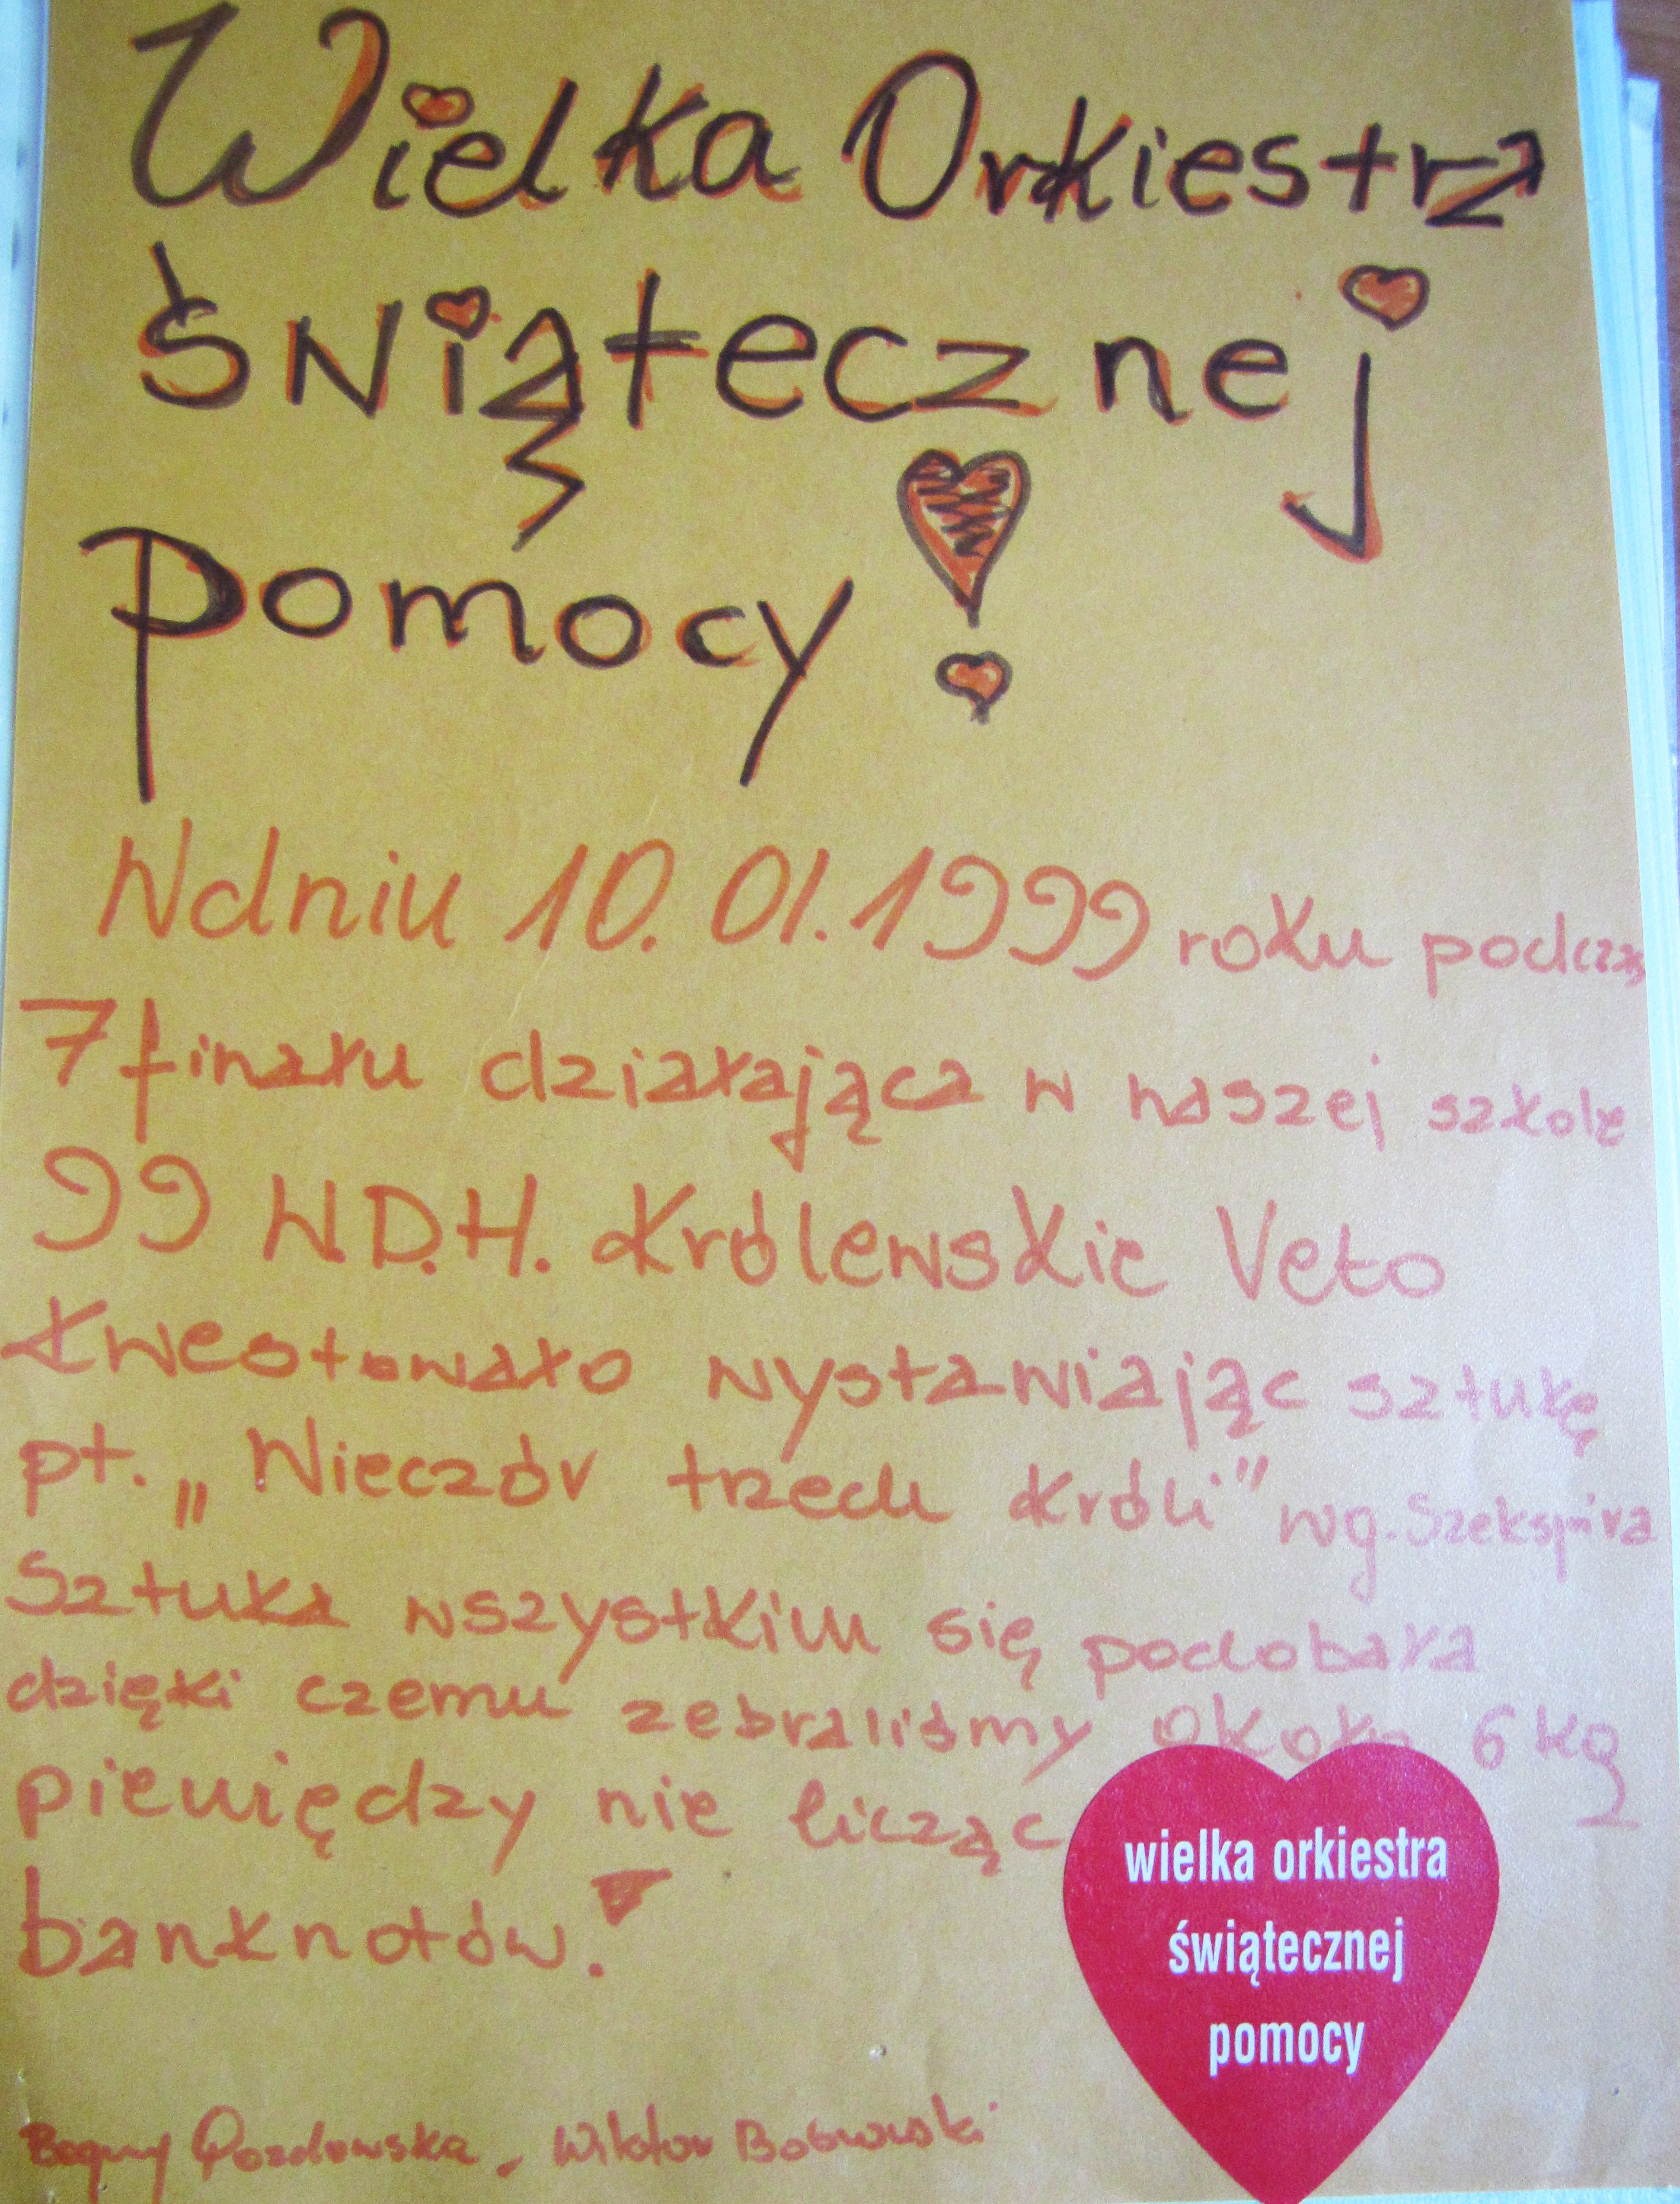 Wielka Orkiestra
świątecznej
pomocy!
W dniu 10.01.1999 roku podczas
7 finału działająca w naszej szkole
99 W.D.H. Królewskie Veto
kwestowało wystawiając sztukę
pt. „Wieczór trzech króli" wg. Szekspira
Sztuka wszystkim się podobała
dzięki czemu zebraliśmy około 6 kg
pieniędzy nie licząc
banknotów.
wielka orkiestra
świątecznej
pomocy
Wiktor Bobrowski